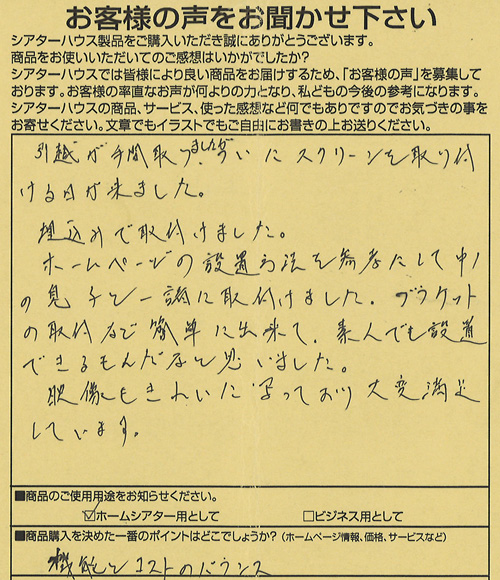 お客様の声をお聞かせ下さい
シアターハウス製品をご購入いただき誠にありがとうございます。
商品をお使いいただいてのご感想はいかがでしたか?
シアターハウスでは皆様により良い商品をお届けするため、「お客様の声」を募集して
おります。お客様の率直なお声が何よりの力となり、私どもの今後の参考になります。
シアターハウスの商品、サービス、使った感想など何でもありですのでお気づきの事を
お寄せください。文章でもイラストでもご自由にお書きの上お送りください。
引越が手間取りましたが、ついにスクリーンを取り付
ける日が来ました。
埋込みで取付けました。
ホームページの設置方法を参考にして中1
の息子と一諸に取付けました。ブラケット
の取付など簡単に出来て、素人でも設置
できるもんだなと思いました。
映像もきれいに写っており大変満足
しています。
■商品のご使用用途をお知らせください。
☑ホームシアター用として □ビジネス用として
■商品購入を決めた一番のポイントはどこでしょうか?(ホームページ情報、価格、サービスなど)
機能とコストのバランス